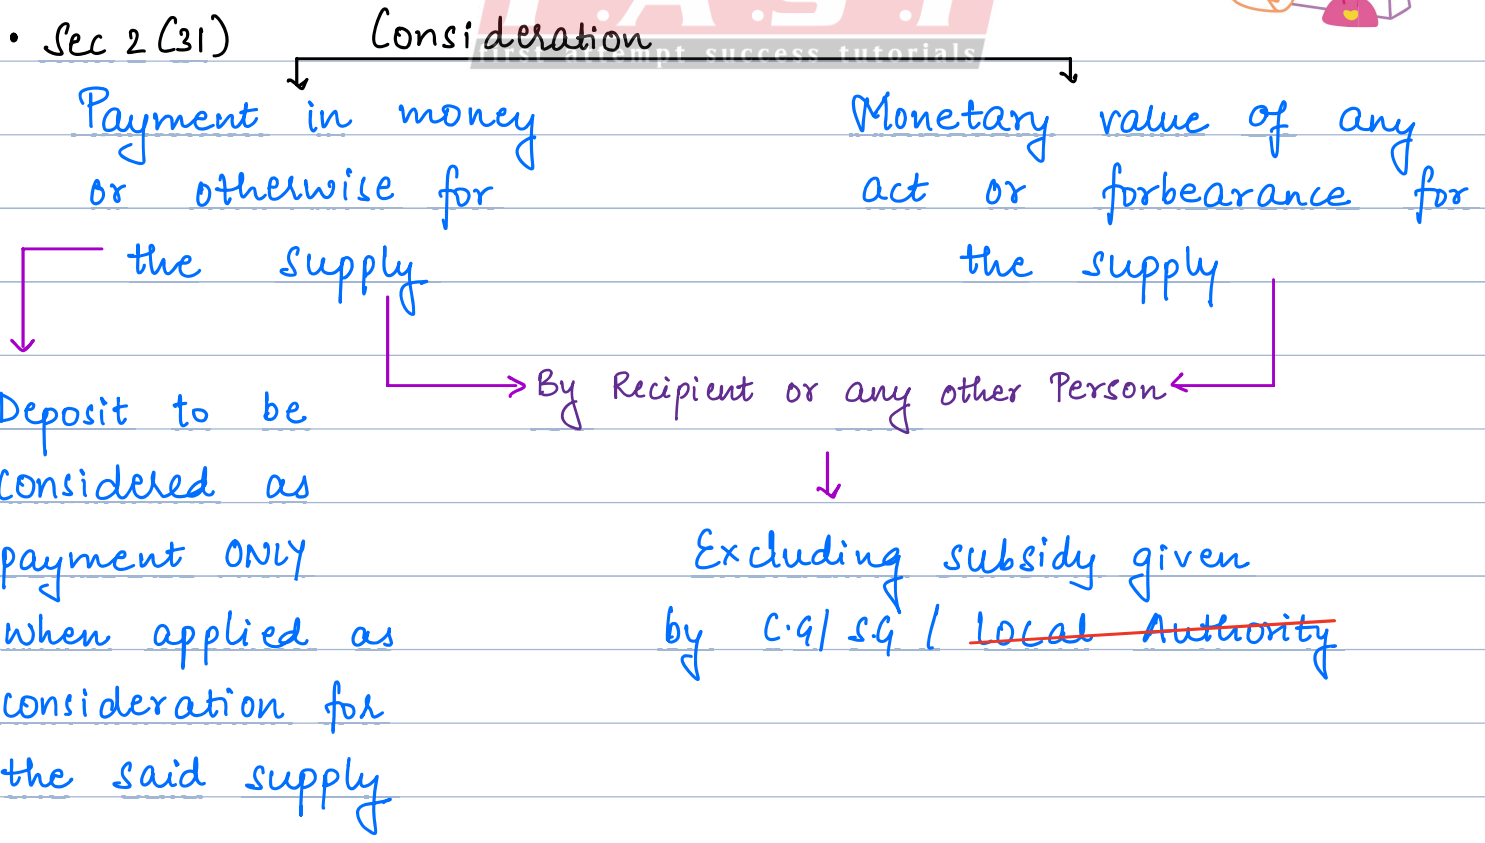 F.A.S.T
first attempt success tutorials
• Sec 2 (31) Consideration
Payment in money
or otherwise for
the supply
Monetary value of any
act or forbearance for
the supply
By Recipient or any other Person
Deposit to be
considered as
payment ONLY
when applied as
consideration for
the said supply
Excluding subsidy given
by C.G/ S.G / Local Authority